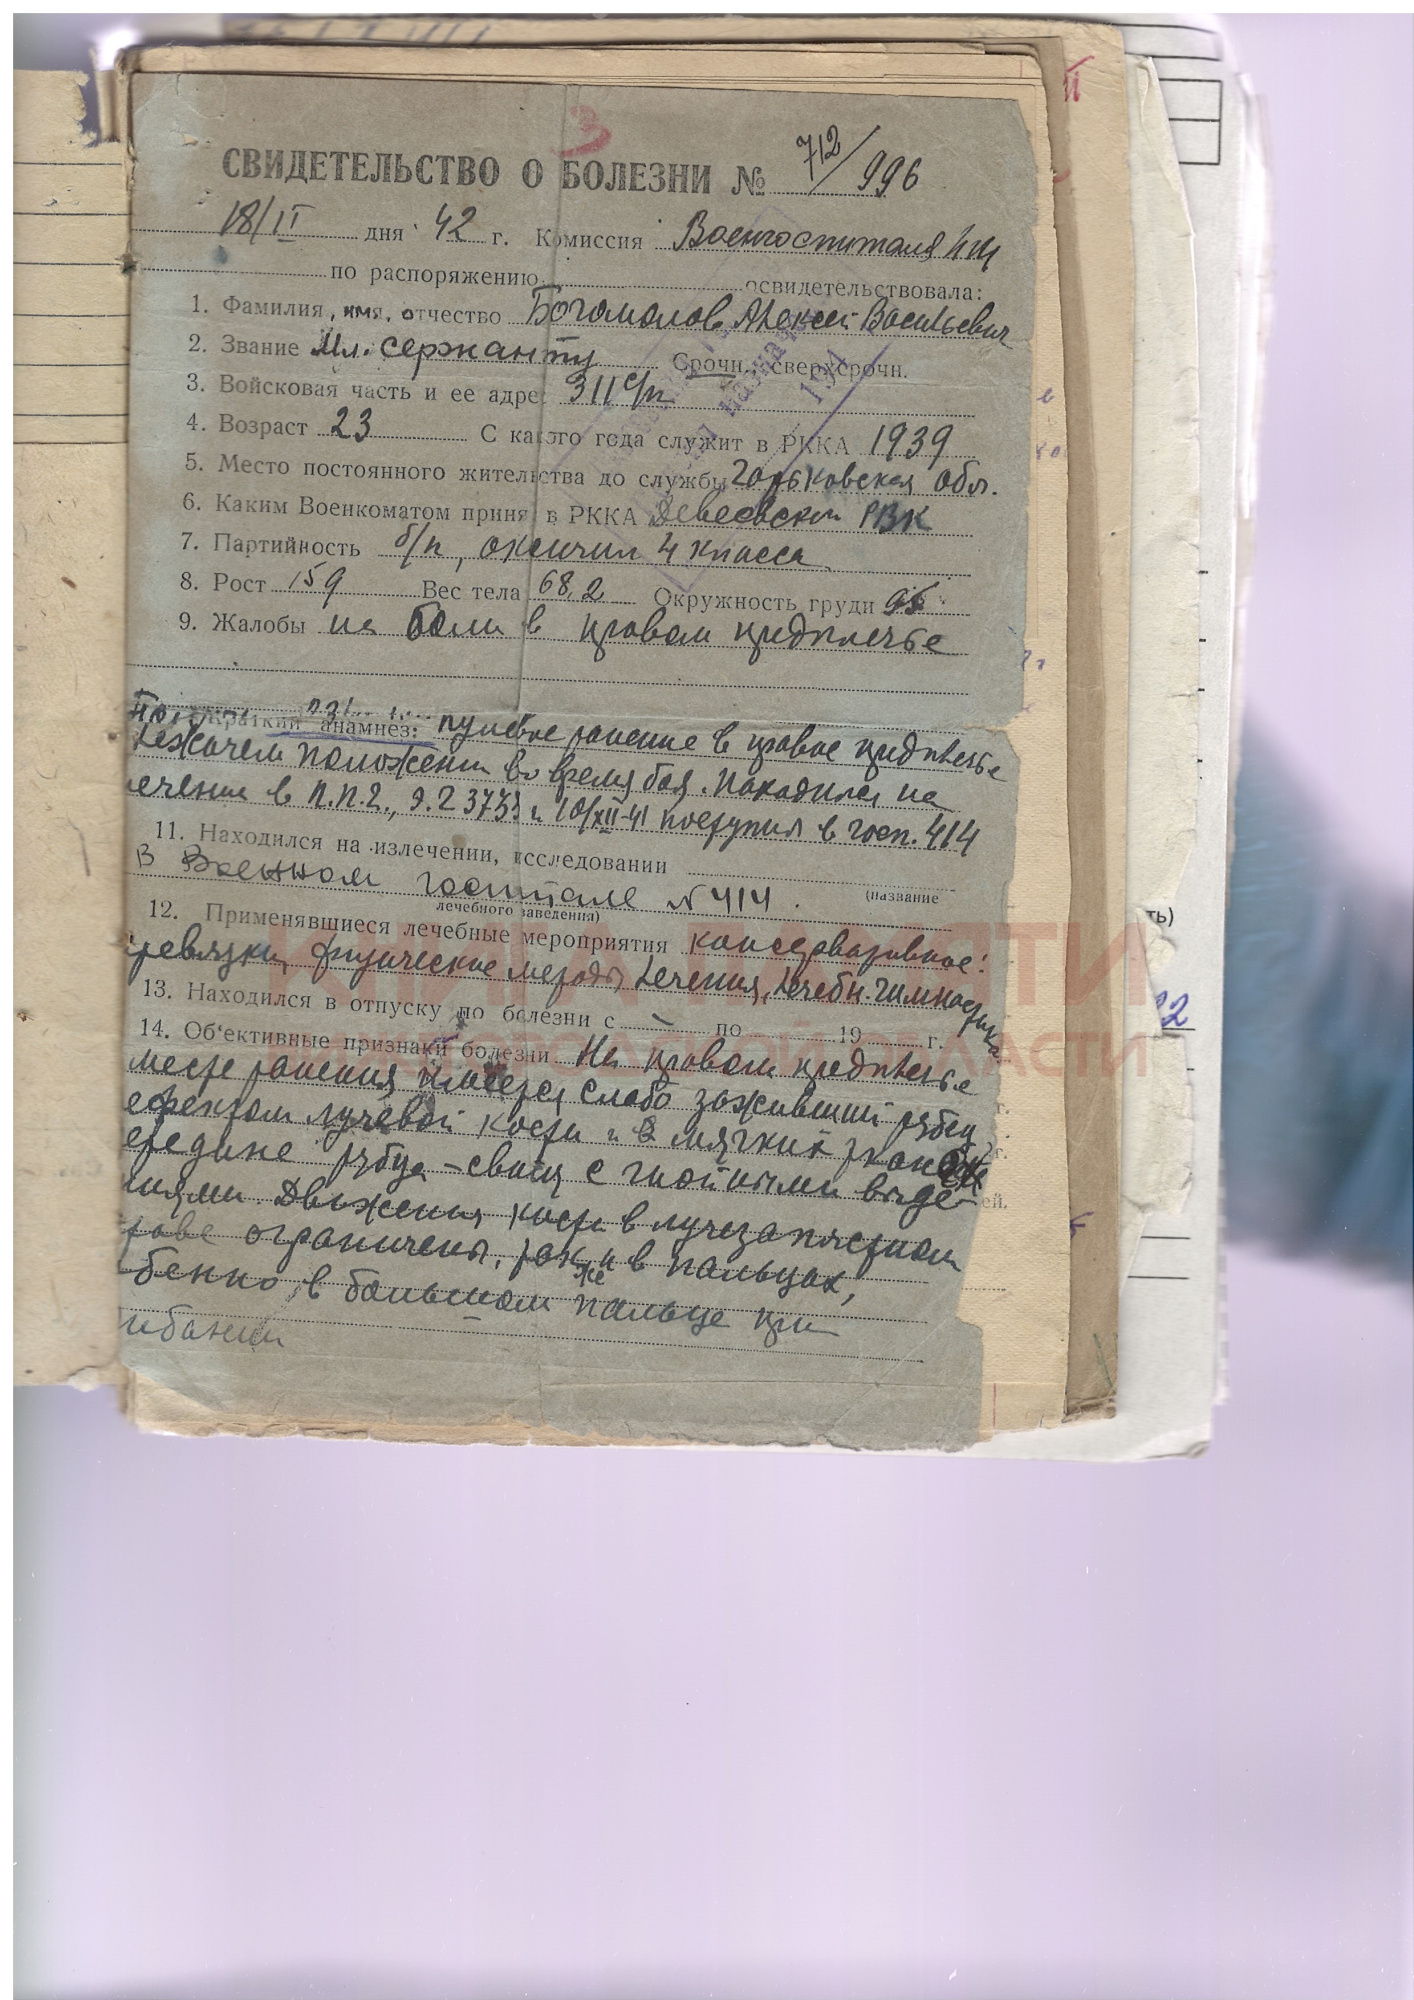 3
СВИДЕТЕЛЬСТВО О БОЛЕЗНИ № 712/996
18/II дня 42 г. Комиссия Военгоспиталя
по распоряжению освидетельствовала:
1. Фамилия, имя, отчество Богомолов Алексей Васильевич
2. Звание Мл. сержанту Срочн., сверхсрочн.
3. Войсковая часть и ее адрес 311 с/п
4. Возраст 23 С какого года служит в РККА 1939
5. Место постоянного жительства до службы Горьковская обл.
6. Каким Военкоматом принят в РККА РВК
7. Партийность б/п, окончил 4 класса
8. Рост 159 Вес тела 68,2 Окружность груди 95
9. Жалобы на боли в правом предплечье
краткий анамнез: пулевое ранение в правое предплечье
лежачем положении во время боя. Находился на
лечении в П.П.Г., Э.Г 3733 и 10/XII-41 поступил в госп. 414
11. Находился на излечении, исследовании
в Военном госпитале № 414. (название
лечебного заведения)
12. Применявшиеся лечебные мероприятия консервативное:
перевязки, физические методы лечения, лечебн. гимнастика
13. Находился в отпуску по болезни с — по 19 г.
14. Об'ективные признаки болезни На правом предплечье
месте ранения имеется слабо заживший рубец
ефектом лучевой кости и в мягких тканях
ередине рубца – свищ с гнойными выде-
ниями. Движения кости в лучезапястном
ставе ограничены, также и в пальцах,
бенно в большом пальце при
гибании
КНИГА ПАМЯТИ
ОБЛАСТИ